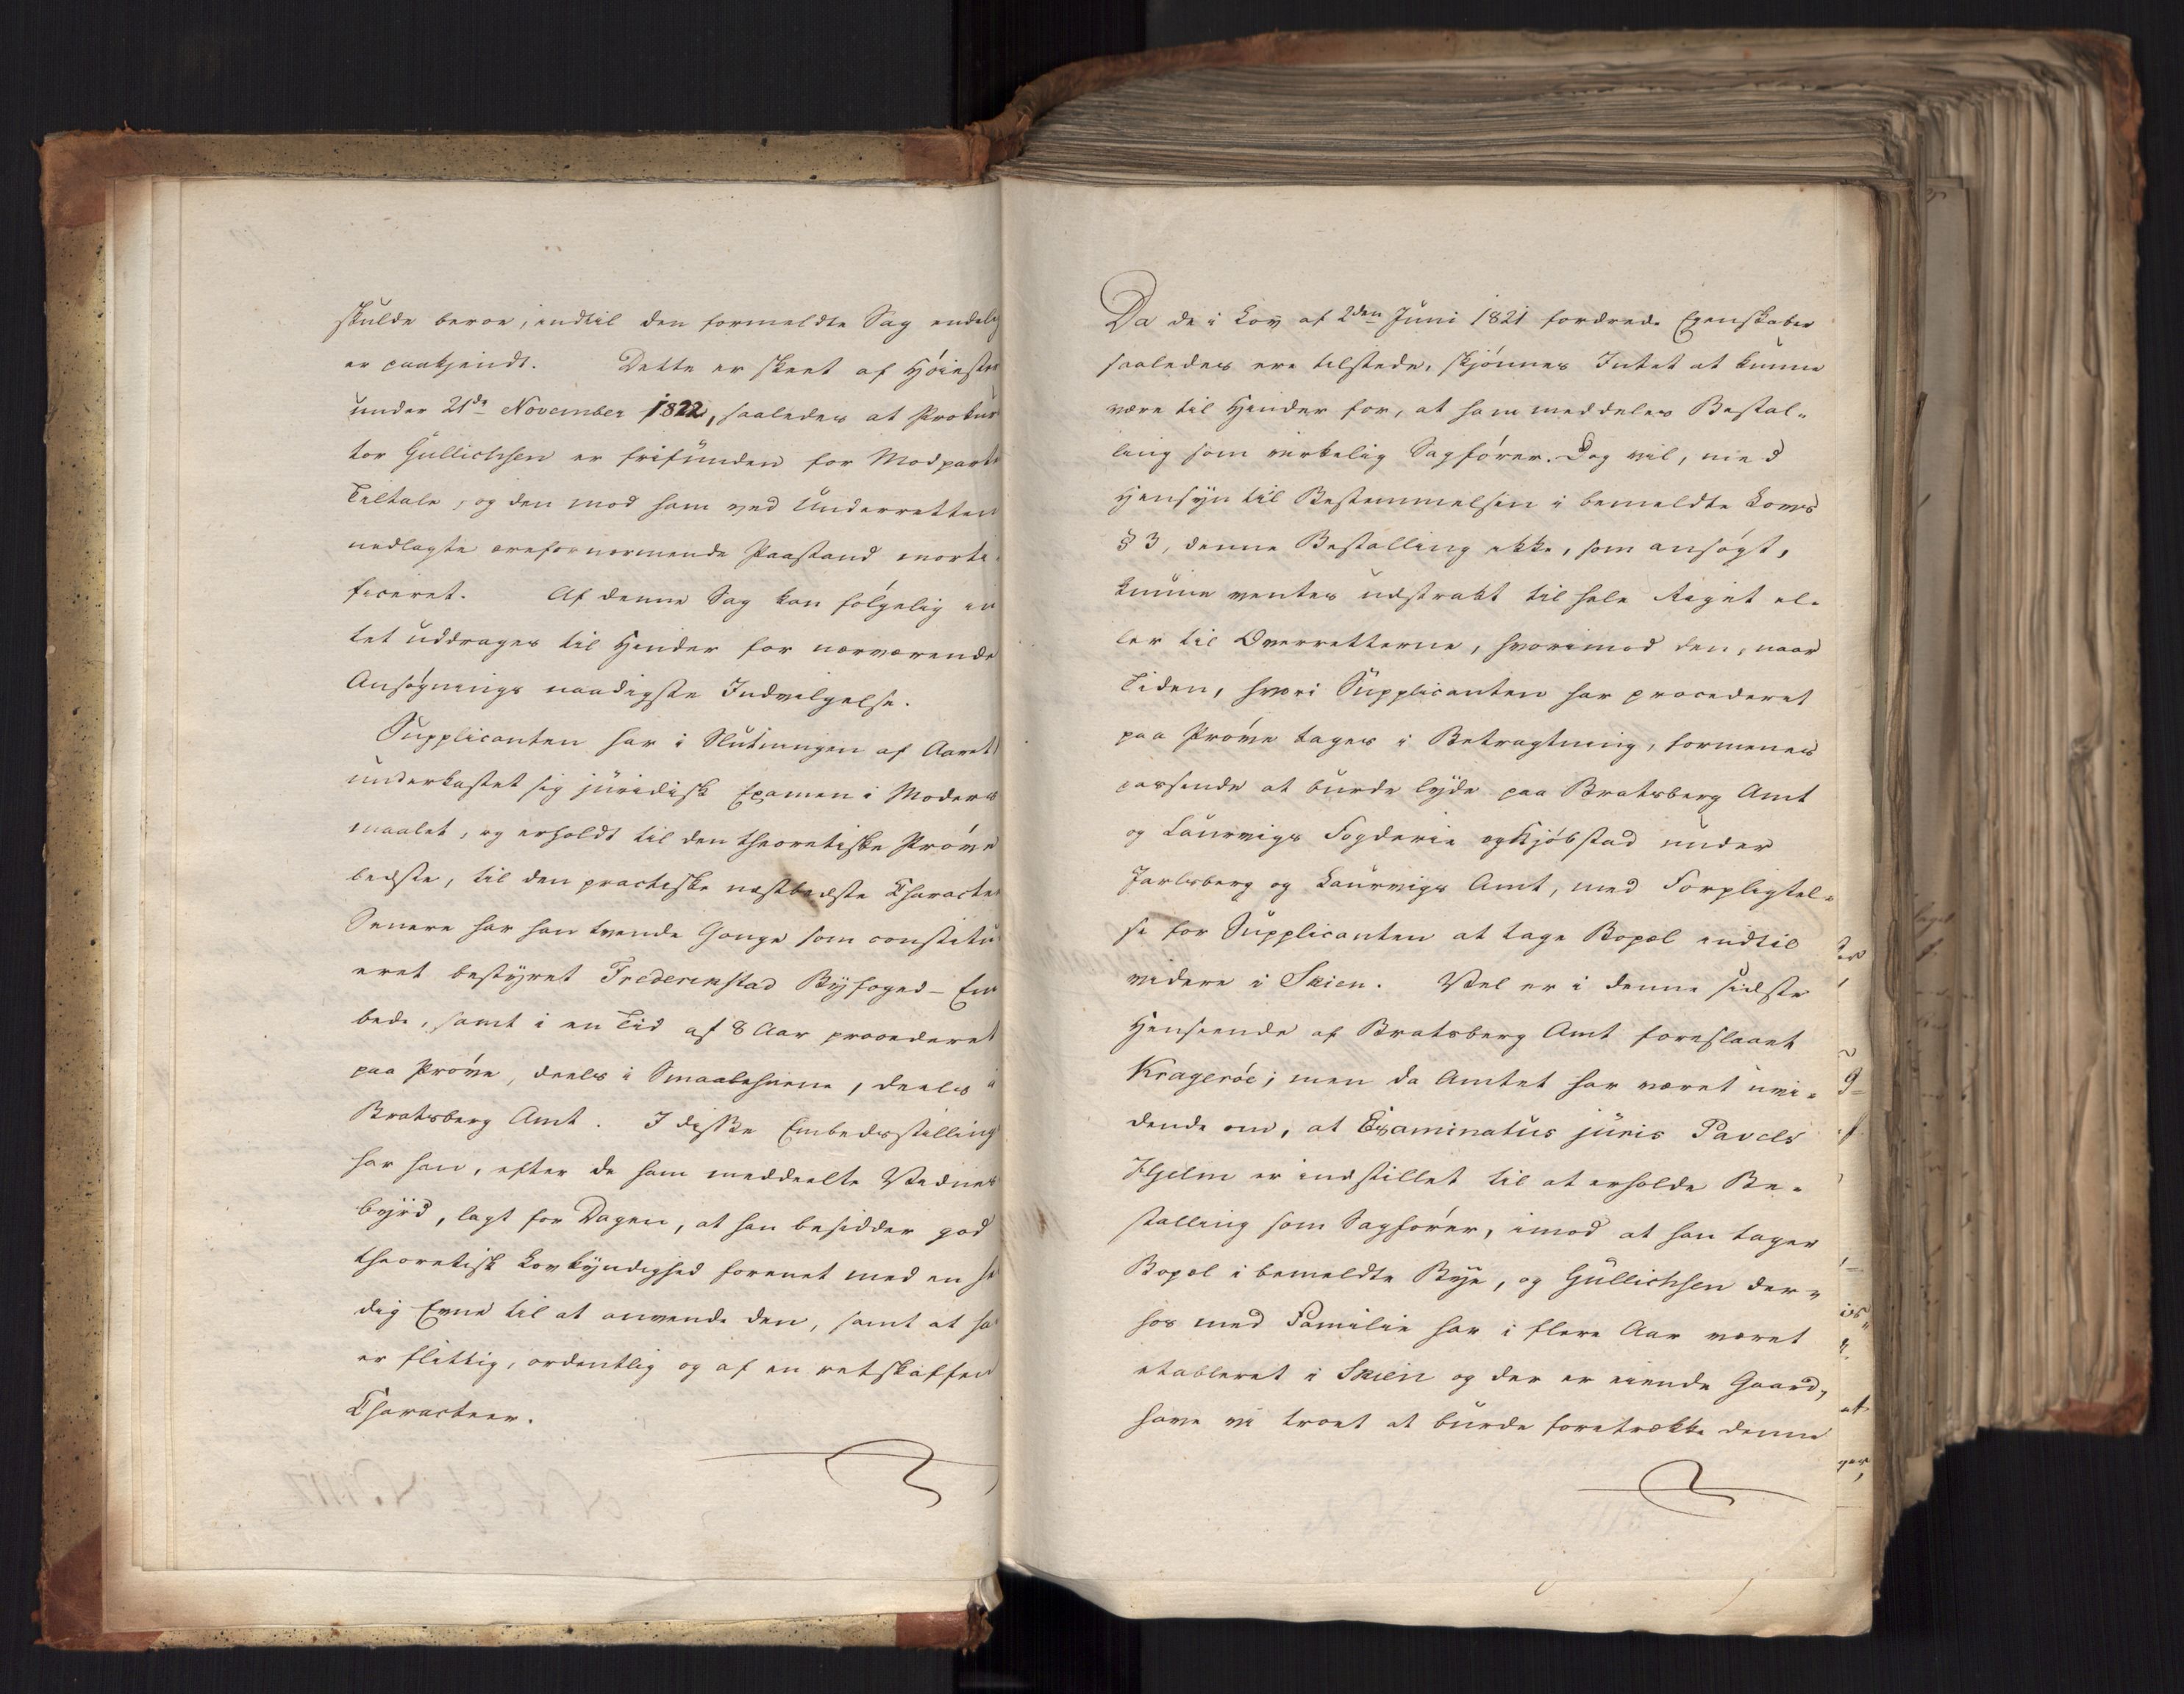 skulde beroe, indtil den formeldte Sag endelig
er paakjendt. Dette er skeet af Høieste
under 21de November 1822, saaledes at Prokur
tor Gullichsen er frifunden for Modpart
Tiltale, og den mod ham ved Underretten
nedlagte ærefornærmende Paastand morti
ficeret. Af denne Sag kan følgelig in
tet uddrages til Hinder for nærværende
Ansøgnings naadigste Indvilgelse.
Supplicanten har i Slutningen af Aaret
underkastet sig juridisk Examen i Moders
maalet, og erholdt til den theoretiske Prøve
bedste, til den practiske næstbedste Characte
Senere har han tvende Gange som constitu
eret bestyret Frederikstad Byfoged-Em
bede, samt i en Tid af 8 Aar procederet
paa Prøve, deels i Smaalehnene, deels i
Bratsberg Amt. I disse Embedsstilling
har han, efter de ham meddeelte Vidnes
byrd, lagt for Dagen, at han besidder god
theoretisk Lovkyndighed forenet med en
dig Evne til at anvende den, samt at ha
er flittig, ordentlig og af en retskaffen
Characteer.
Da de i Lov af 2den Juni 1821 fordrede Egenskaber
saaledes ere tilstede, skjønnes Intet at kunne
være til Hinder for, at ham meddeles Bestal-
ling som virkelig Sagfører. Dog vil, med
Hensyn til Bestemmelsen i bemeldte Lovs
§ 3, denne Bestalling ikke, som ansøgt,
kunne ventes udstrakt til hele Riget el-
ler til Overretterne, hvorimod den, naar
Tiden, hvori Supplicanten har procederet
paa Prøve tages i Betragtning, formenes
passende at burde lyde paa Bratsberg Amt
og Laurvigs Fogderie og Kjøbstad under
Jarlsberg og Laurvigs Amt, med Forpligtel-
se for Supplicanten at tage Bopæl indtil
videre i Skien. Vel er i denne sidste
Henseende af Bratsberg Amt foreslaaet
Kragerøe; men da Amtet har været uvi-
dende om, at Examinatus juris Pavels
Hjelm er indstillet til at erholde Be-
stalling som Sagfører, imod at han tager
Bopæl i bemeldte Bye, og Gullichsen der-
hos med Familie har i flere Aar været
etableret i Skien og der er eiende Gaard,
have vi troet at burde foretrække denne